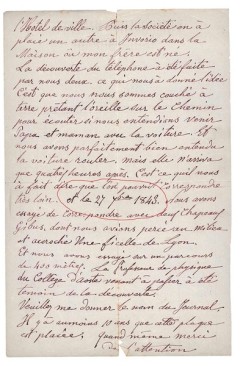 l'Hôtel de ville. Puis la société en à
plaçé un autre à Jouvrie dans la
Maison où mon frère est né.
La découverte du téléphone a été faite
par nous deux, ce qui nous a donné l'idée
C'est que nous nous sommes couché à
terre prétant l'oreille sur le Chemin
pour écouter si nous entendions venir
Papa et maman avec la voiture. Et
nous avons parfaitement bien entendu
la voiture rouler, mais elle n'arriva
que quatre heures après. C'est ce qui nous
a fait dire que l'on pouvait Correspondre
très loin. et le 27 9bre 1843. Nous avons
essayé de Correspondre avec deux Chapeaux
Gibus, dont nous avions percé en
et accroché Une ficelle de Lyon.
Et nous avons essayé sur un parcours
de 400 mètres. Le Professeur de physique
du Collège venant à passer a été
témoin de la découverte.
Veuillez me donner le nom du Journal.
Il y a aumoins 10 ans que cette plaque
est plaçée. quand même merci
de l'attention